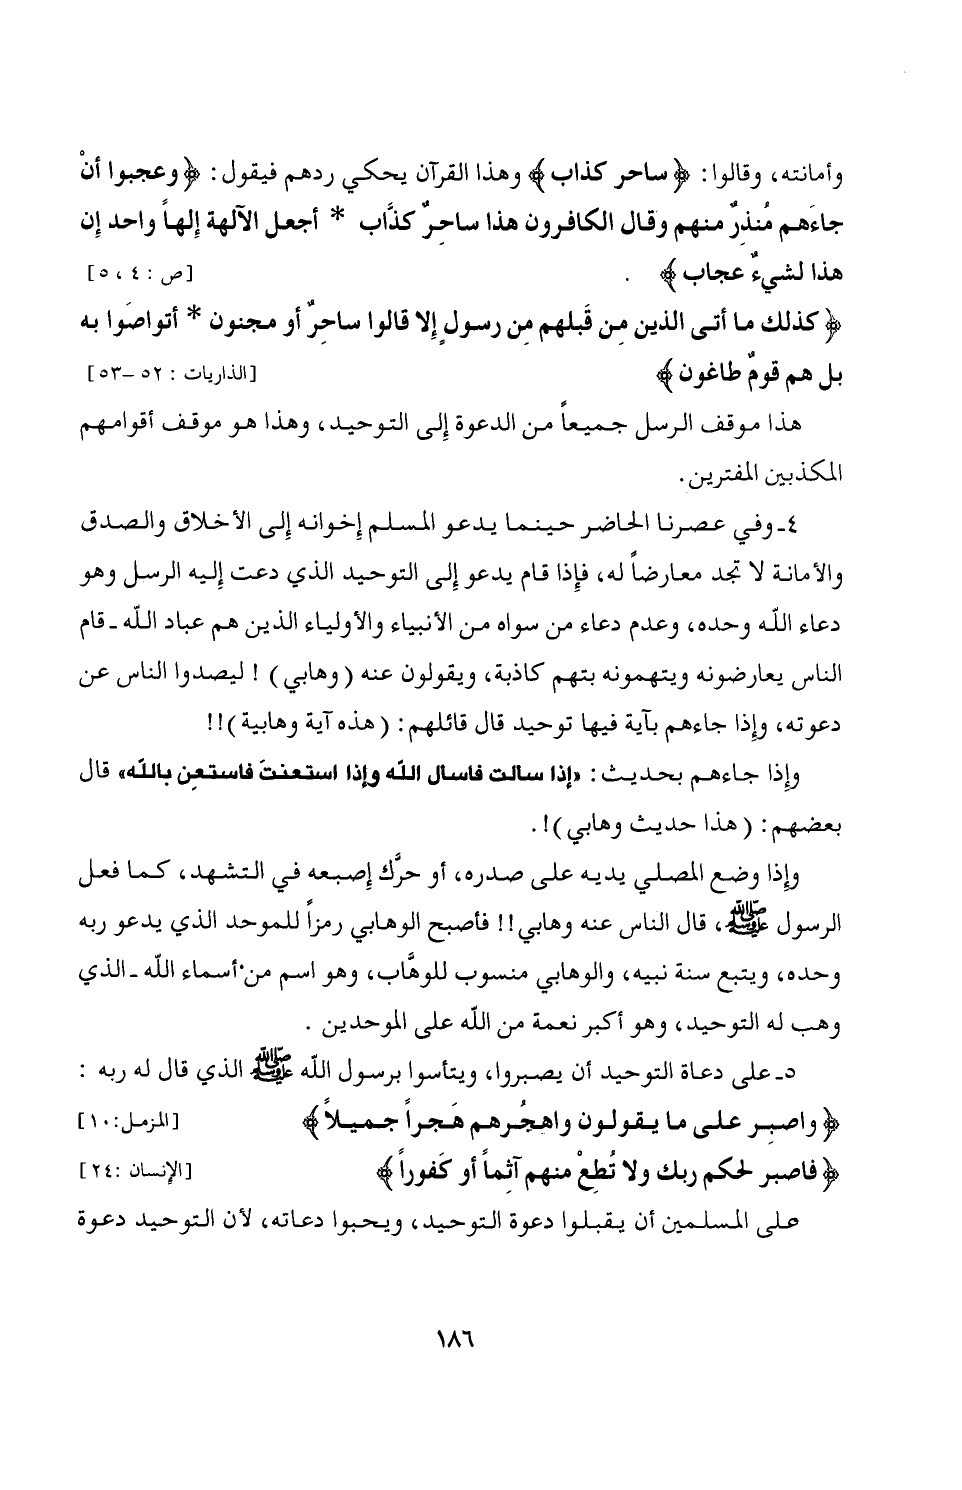 وأمانته، وقالوا: ﴿ساحر كذاب﴾ وهذا القرآن يحكي ردهم فيقول: ﴿وعجبوا أنْ
جاءَهم مُنذِرٌ منهم وقال الكافرون هذا ساحِرٌ كذَّاب * أجعل الآلهة إلهاً واحد إن
هذا لشيءٌ عجاب﴾ . [ص : ٤ ، ٥]
﴿كذلك ما أتى الذين مِن قَبلهم مِن رسولٍ إلا قالوا ساحِرٌ أو مجنون * أتواصَوا به
بل هم قومٌ طاغون﴾ [الذاريات : ٥٢ -٥٣]
هذا موقف الرسل جميعاً من الدعوة إلى التوحيد، وهذا هو موقف أقوامهم
المكذبين المفترين.
٤ـ وفي عصرنا الحاضر حينما يدعو المسلم إخوانه إلى الأخلاق والصدق
والأمانة لا تجد معارضاً له، فإذا قام يدعو إلى التوحيد الذي دعت إليه الرسل وهو
دعاء اللّه وحده، وعدم دعاء من سواه من الأنبياء والأولياء الذين هم عباد اللّه ـ قام
الناس يعارضونه ويتهمونه بتهم كاذبة، ويقولون عنه (وهابي) ! ليصدوا الناس عن
دعوته، وإذا جاءهم بآية فيها توحيد قال قائلهم: (هذه آية وهابية)!!
وإذا جاءهم بحديث: «إذا سالت فاسال اللّه وإذا استعنتَ فاستعِن باللّه» قال
بعضهم: (هذا حديث وهابي)!.
وإذا وضع المصلي يديه على صدره، أو حرَّك إصبعه في التشهد، كما فعل
الرسول ﷺ، قال الناس عنه وهابي!! فأصبح الوهابي رمزاً للموحد الذي يدعو ربه
وحده، ويتبع سنة نبيه، والوهابي منسوب للوهَّاب، وهو اسم من أسماء اللّه ـ الذي
وهب له التوحيد، وهو أكبر نعمة من اللّه على الموحدين .
٥ـ على دعاة التوحيد أن يصبروا، ويتأسوا برسول اللّه ﷺ الذي قال له ربه :
﴿واصبِر على ما يقولون واهجُرهم هَجراً جميلاً﴾ [المزمل:١٠]
﴿فاصبر لحكم ربك ولا تُطِعْ منهم آثِماً أو كَفوراً﴾ [الإنسان :٢٤]
على المسلمين أن يقبلوا دعوة التوحيد، ويحبوا دعاته، لأن التوحيد دعوة
١٨٦